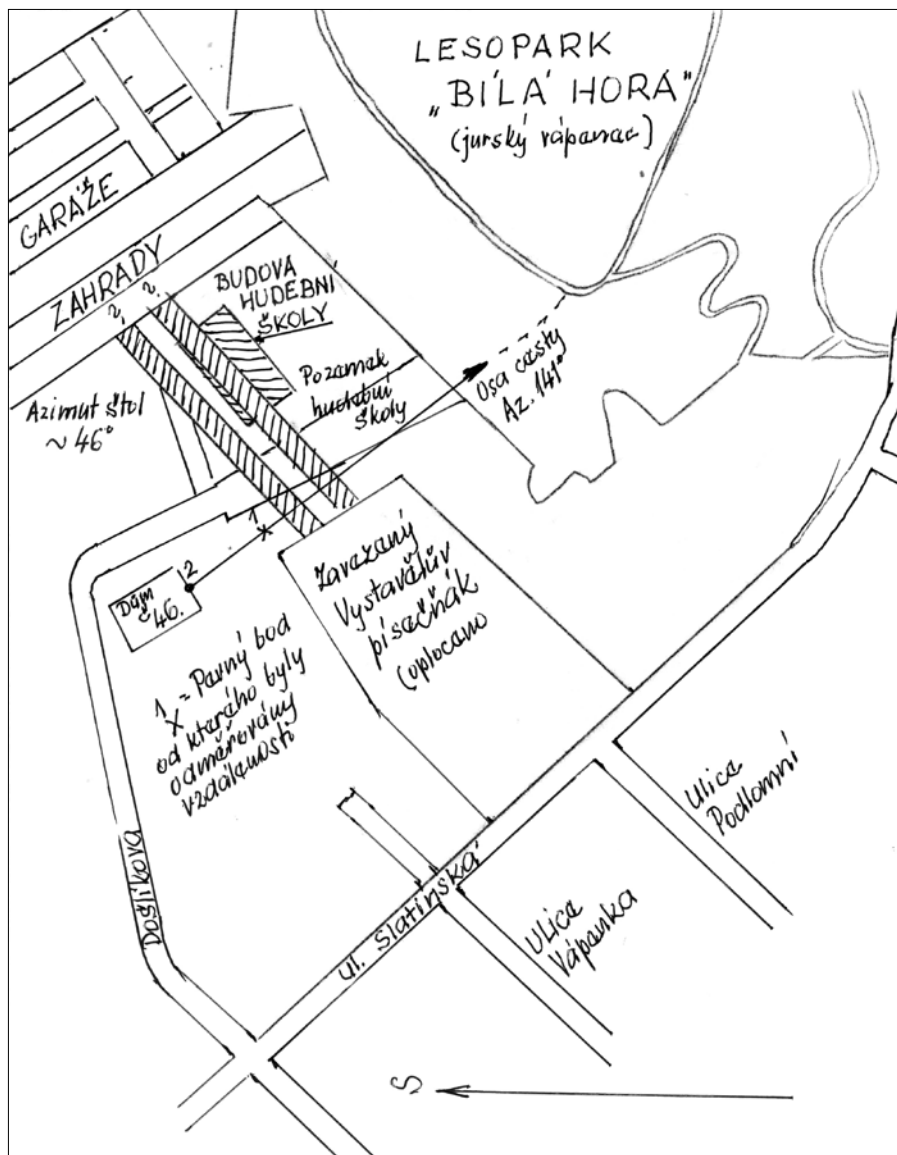 LESOPARK
„BÍLÁ HORA"
(jurský vápenec)
GARÁŽE
ZAHRADY
?
?
BUDOVA
HUDEBNÍ
ŠKOLY
Pozemek
hudební
školy
Azimut štol
~ 46°
Osa cesty
Az. 141°
1
2
Dům
č 46.
Zavezený
Vystavělův
písečňák
(oploceno
1 = Pevný bod
X od kterého byly
odměřovány
vzdálenosti
Došlíkova
ul. Slatinská
Ulice
Podlomní
Ulice
Vápenka
S